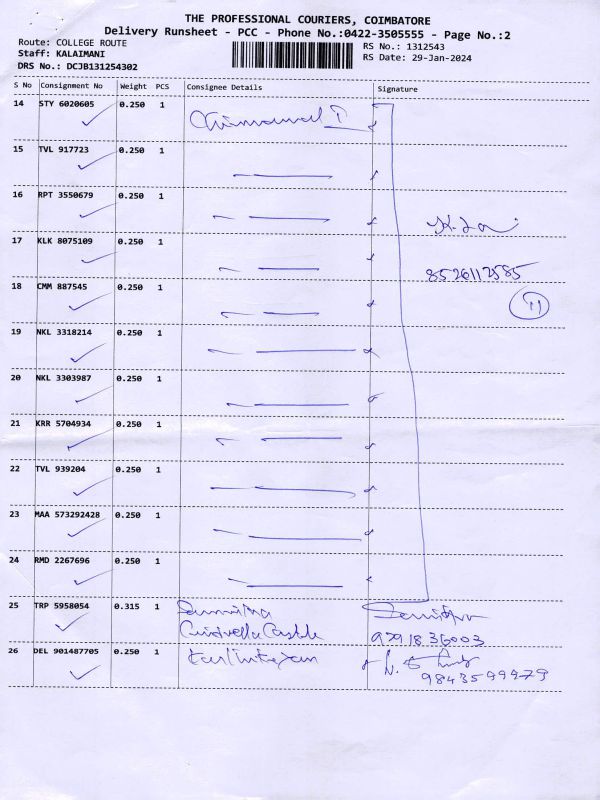 THE PROFESSIONAL COURIERS, COIMBATORE
Delivery Runsheet - PCC - Phone No.:0422-3505555 - Page No.:2
Route: COLLEGE ROUTE
RS No.: 1312543
Staff: KALAIMANI
RS Date: 29-Jan-2024
DRS No.: DCJB131254302
S No Consignment No Weight PCS Consignee Details Signature
14 STY 6020605 0.250 1
15 TVL 917723 0.250 1
16 RPT 3550679 0.250 1
17 KLK 8075109 0.250 1
8526112585
18 CMM 887545 0.250 1
11
19 NKL 3318214 0.250 1
20 NKL 3303987 0.250 1
21 KRR 5704934 0.250 1
22 TVL 939204 0.250 1
23 MAA 573292428 0.250 1
24 RMD 2267696 0.250 1
25 TRP 5958054 0.315 1
9791836003
26 DEL 901487705 0.250 1
9843599979